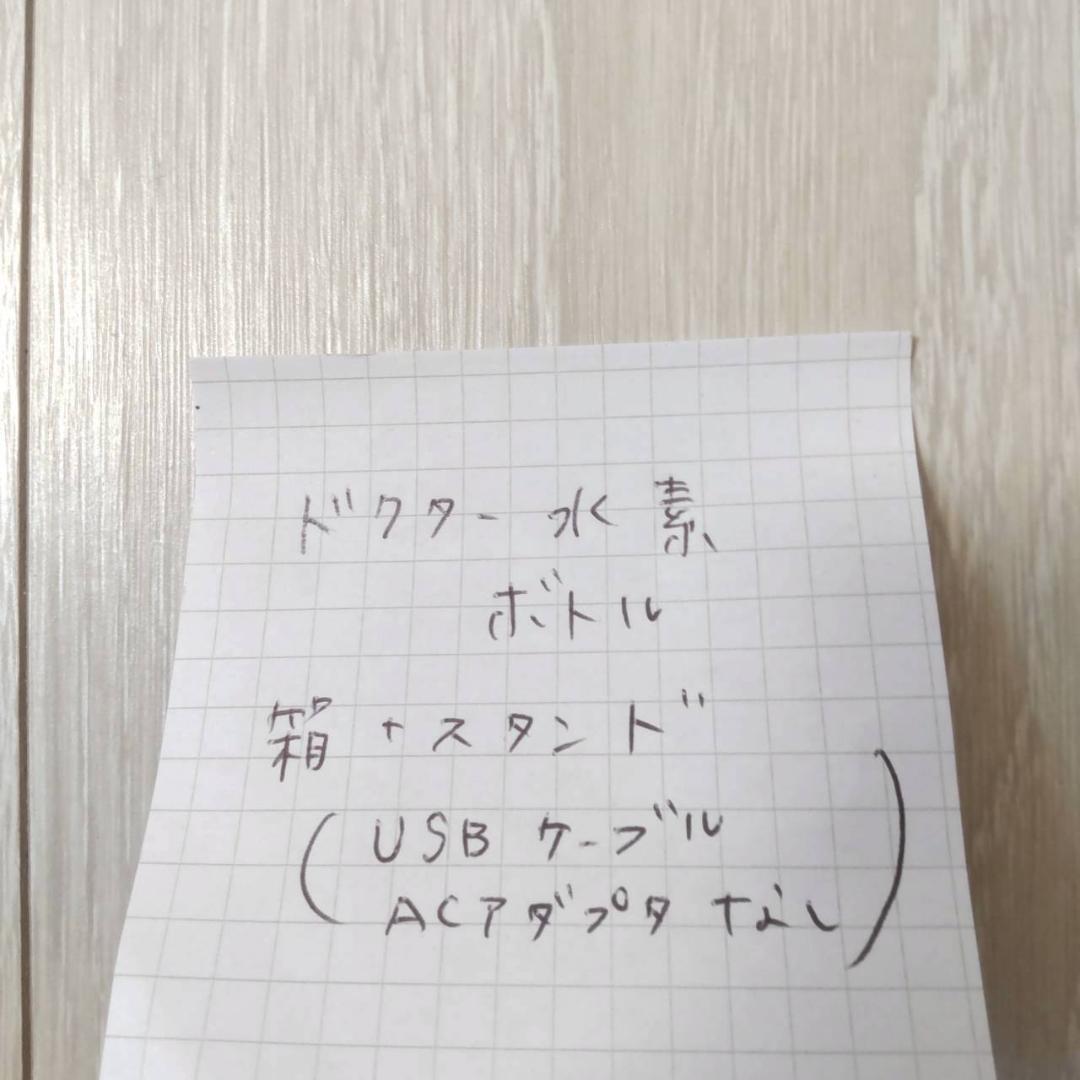 ドクター水素
ボトル
箱+スタンド
(USBケーブル
ACアダプタなし)